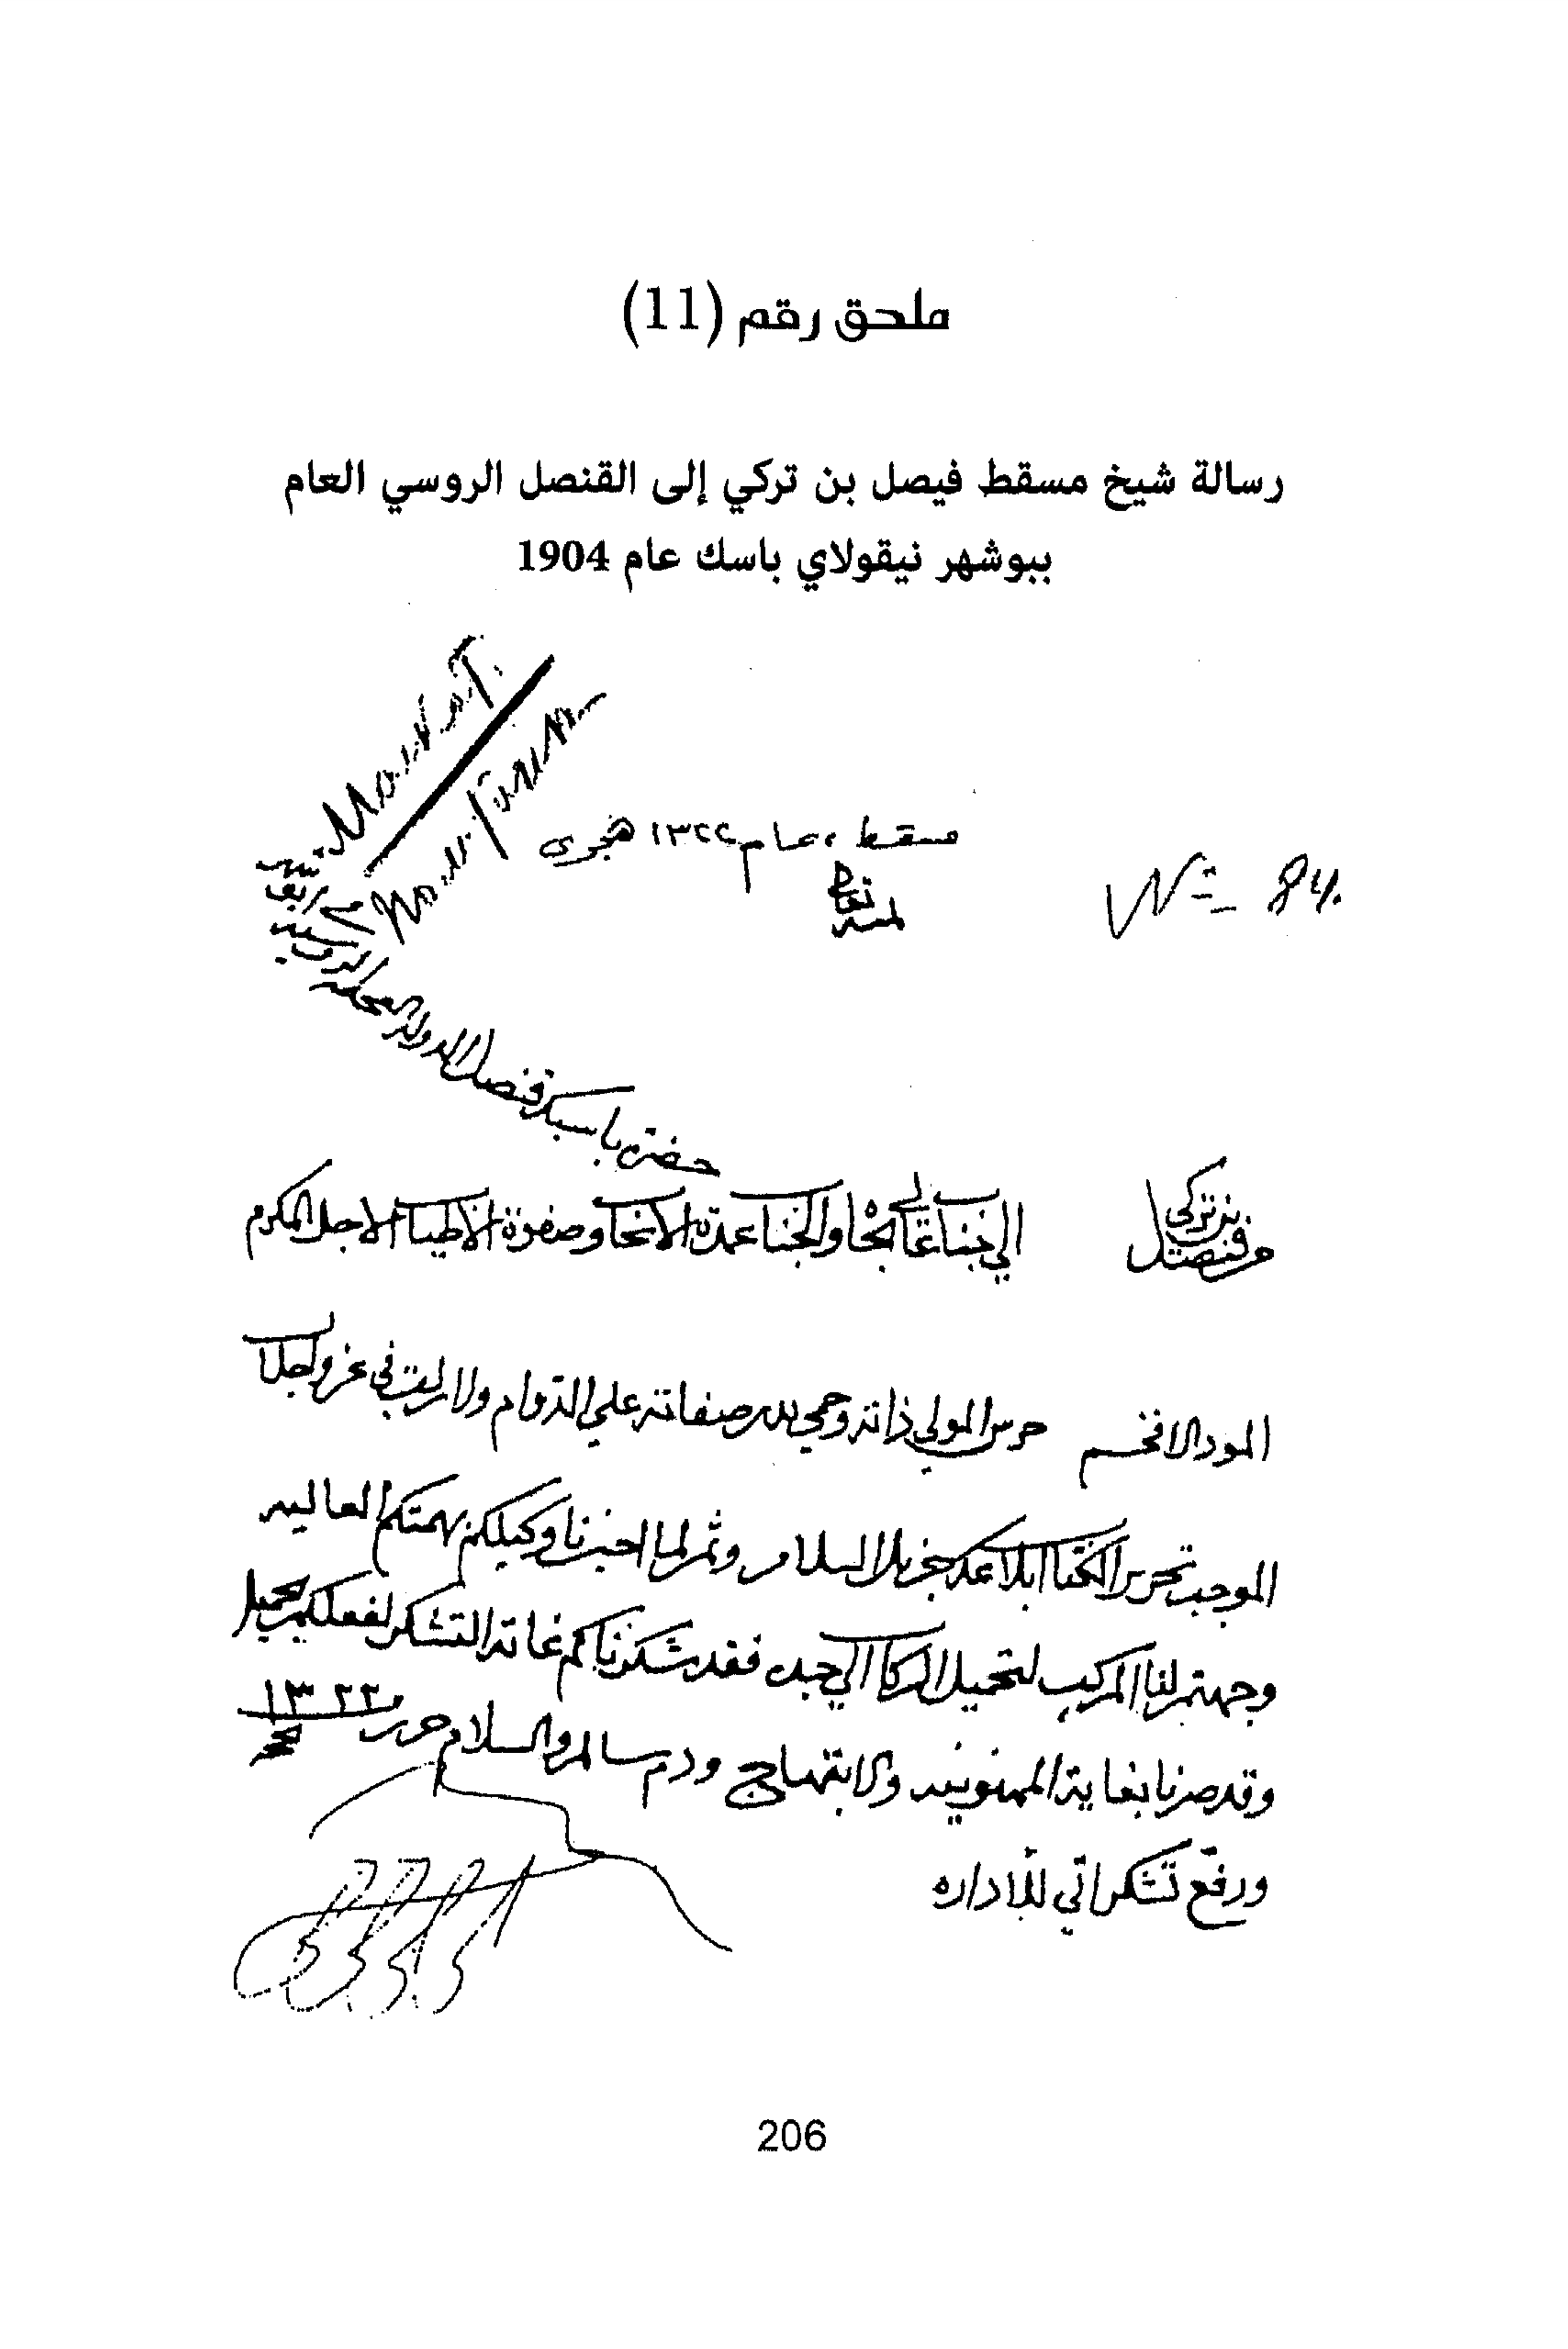 ملحق رقم (11)
رسالة شيخ مسقط فيصل بن تركي إلى القنصل الروسي العام
ببوشهر نيقولاي باسك عام 1904
مسقط، عام ١٣٢٢ هجرى
لله تعالى
№ 84.
حضرة باسيك قنصل الدولة الروسية
من فيصل بن تركي
الى جناب عالي الجاه والجناب عمدة الانجاب وصفوة الاطياب الاجل المكرم
المود الافخم حرس المولى ذاته وحمى صفاته على الدوام ولا زلت في عز واجلال
الموجب تحرير الكتاب ابلاغكم جزيل السلام وثم لما اخبرنا وكيلكم بهمتكم العاليه
وجهتم لنا المركب لتحميل الركاب الي جده فقد شكرناكم غاية التشكر لفعلكم الجميل
وقد صرنا بغاية الممنونيه والابتهاج ودم سالم والسلام حرر ١٣٢٢
ورفع تشكراتي للاداره
206